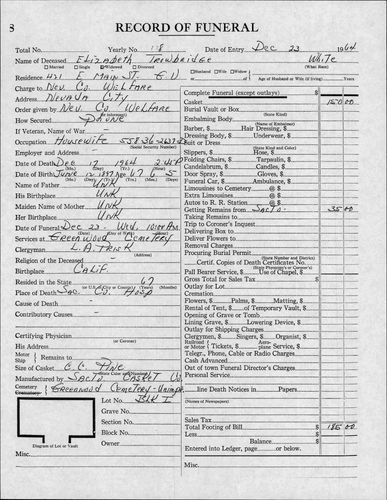 8
RECORD OF FUNERAL
Total No. Yearly No. 18 Date of Entry Dec 23 1964
Name of Deceased Elizabeth Trowbridge White
Married Single Widowed Divorced (What Race)
Residence 421 E Main St. G.V Husband Wife Widow of Age of Husband or Wife (if living)
Charge to Nev. Co. Welfare
Address Nevada City
Order given by Nev. Co. Welfare
How Secured
If Veteran, Name of War
Occupation Housewife
(Social Security Number)
Employer and Address
Date of Death Dec 17 1964 2:45 P
Date of Birth June 12 1897 Age 67 6 5
(Mo.) (Day) (Year) (Yrs.) (Mos.) (Days)
Name of Father Unk
His Birthplace Unk
Maiden Name of Mother Unk
Her Birthplace Unk
Date of Funeral Dec 23 - Wed. 10:00 AM
Services at Greenwood Cemetery
Clergyman L.A. Trisk
Religion of the Deceased
Birthplace Calif.
Resided in the State 67
Place of Death Sac. Co. Hosp
Cause of Death
Contributory Causes
Certifying Physician
His Address
Motor Ship Remains to
Size of Casket C.C. Pine
Manufactured by Sacto Casket Co
Cemetery Greenwood Cemetery
Crematory
Lot No. Blk I
Grave No.
Section No.
Block No.
Owner
Diagram of Lot or Vault
Misc.
Complete Funeral (except outlays) $
Casket 150 00
Burial Vault or Box
(State Kind)
Embalming
(Name of Embalmer)
Barber, $ Hair Dressing, $
Dressing Body, $ Underwear, $
(State Kind and Color)
Slippers, $ Hose, $
Folding Chairs, $ Tarpaulin, $
Candelabrum, $ Candles, $
Door Spray, $ Gloves, $
Funeral Car, $ Ambulance, $
Limousines to Cemetery @ $
Extra Limousines @ $
Autos to R. R. Station @ $
Getting Remains from Sacto. 35 00
Taking Remains to
Trip to Coroner's Inquest
Delivering Box to
Deliver Flowers to
Removal Charges
Procuring Burial Permit
(State Number and District)
Certif. Copies of Death Certificates No.
(State Physician's or Coroner's)
Pall Bearer Service, $ Use of Chapel, $
Gross Total for Sales Tax $
Outlay for Lot
Cremation
Flowers, $ Palms, $ Matting, $
Rental of Tent, $ of Temporary Vault, $
Opening of Grave or Tomb
Lining Grave, $ Lowering Device, $
Outlay for Shipping Charges
Clergymen, $ Singers, $ Organist, $
Railroad or Motor Tickets, $ Aeroplane Service, $
Telegr., Phone, Cable or Radio Charges
Cash Advanced
Out of town Funeral Director's Charges
Personal Service
line Death Notices in Papers
(Names of Newspapers)
Sales Tax
Total Footing of Bill $ 185 00
Less $
Balance $
Entered into Ledger, page or below.
Misc.